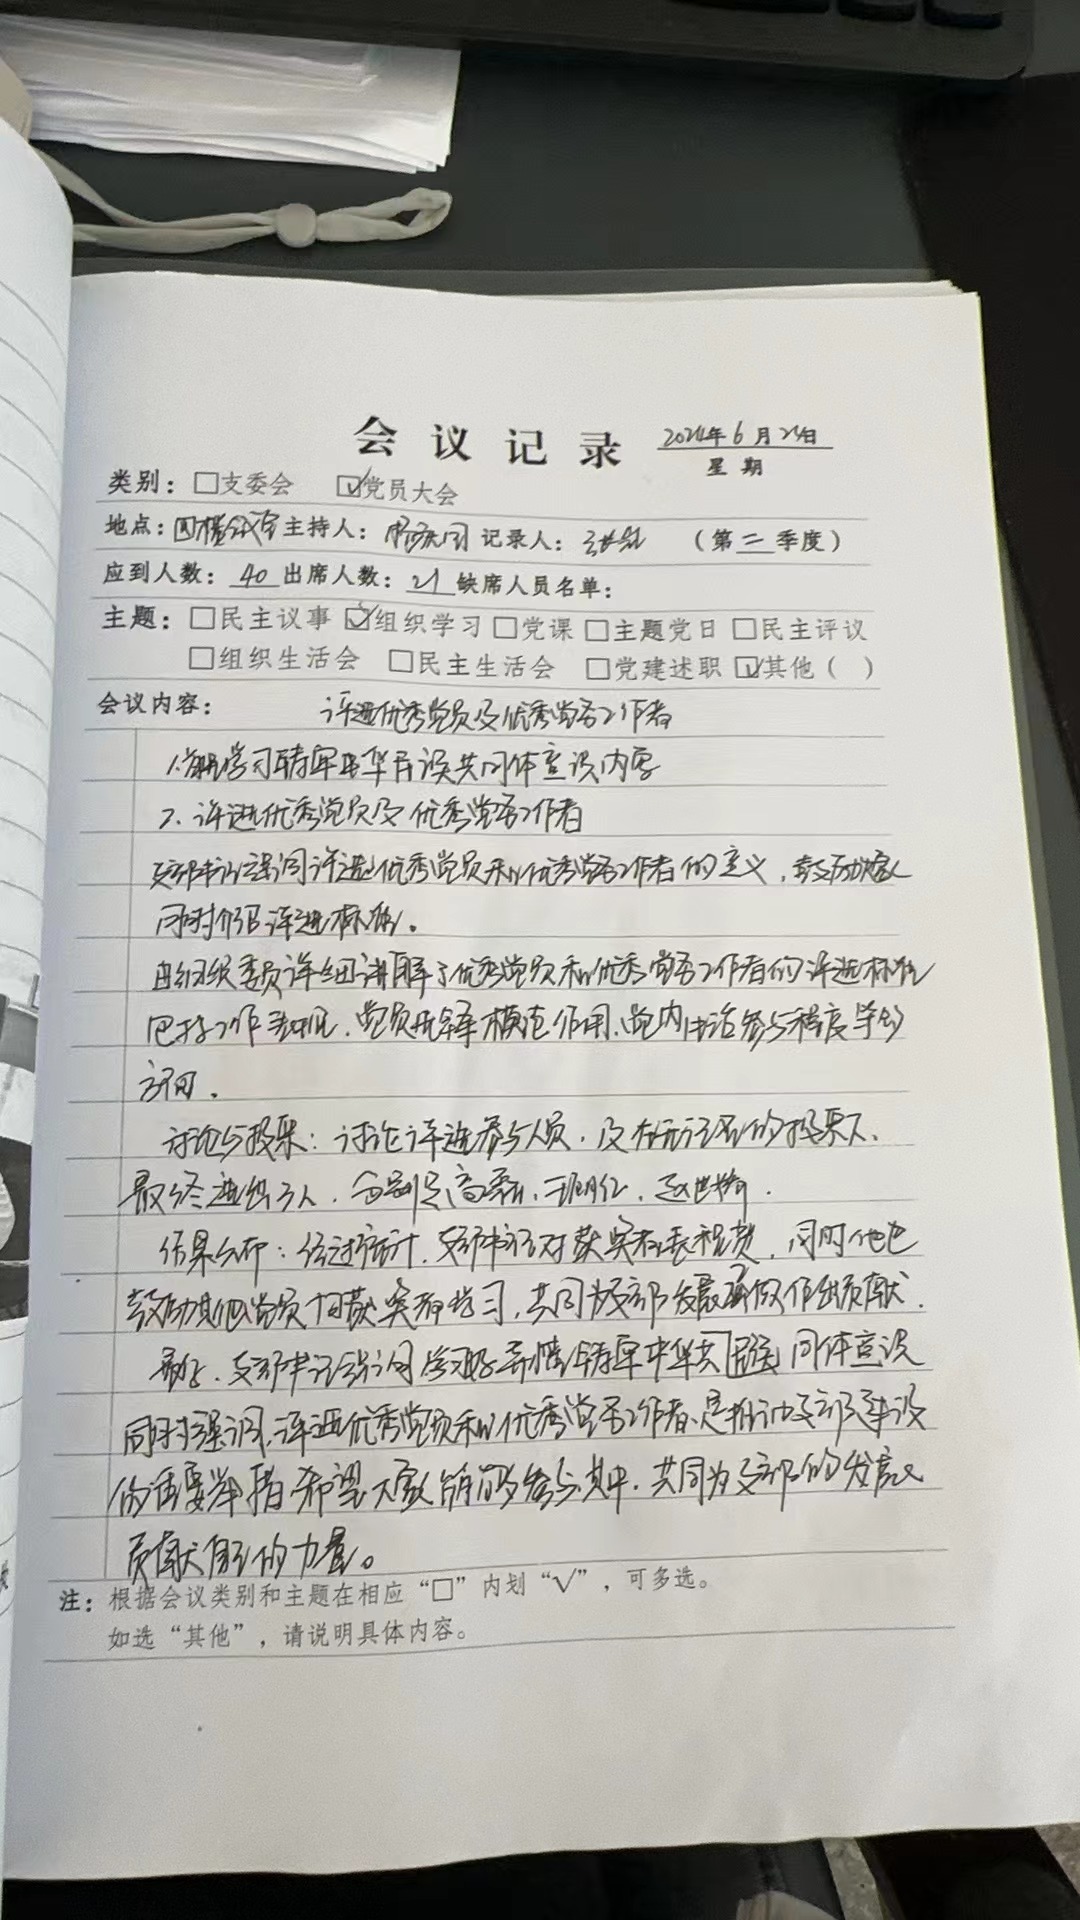 会议记录 2024年6月24日
星期
类别：□支委会 ☑党员大会
地点：四楼会议室 主持人： 记录人： （第二季度）
应到人数：40 出席人数：21 缺席人员名单：
主题：□民主议事 ☑组织学习 □党课 □主题党日 □民主评议
□组织生活会 □民主生活会 □党建述职 ☑其他（ ）
会议内容： 评选优秀党员及优秀党务工作者
1.学习铸牢中华民族共同体意识内容
2、评选优秀党员及优秀党务工作者
支部书记强调评选优秀党员和优秀党务工作者的意义，鼓励
同时介绍评选标准。
由组织委员详细讲解了优秀党员和优秀党务工作者的评选标准
包括工作表现、党员先锋模范作用、党内生活参与程度等
方面。
讨论与投票：讨论评选参与人员，及在无记名的投票下、
最终选出3人，分别是高、
结果公布：经过统计，支部书记对获奖者表祝贺，同时他也
鼓励其他党员向获奖者学习，共同为支部发展作出贡献．
最后，支部书记强调学习铸牢中华共民族同体意识
同时强调，评选优秀党员和优秀党务工作者，是推动支部建设
的重要举措希望大家能够参与其中，共同为支部的发展
贡献自己的力量。
注：根据会议类别和主题在相应“□”内划“√”，可多选。
如选“其他”，请说明具体内容。